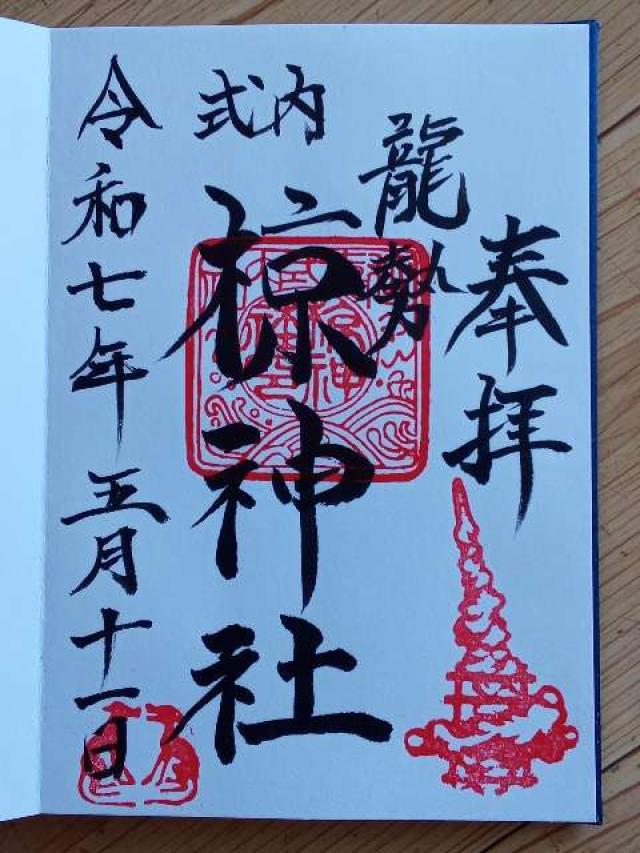 奉拝
龍勢
式内
椋神社
令和七年五月十一日